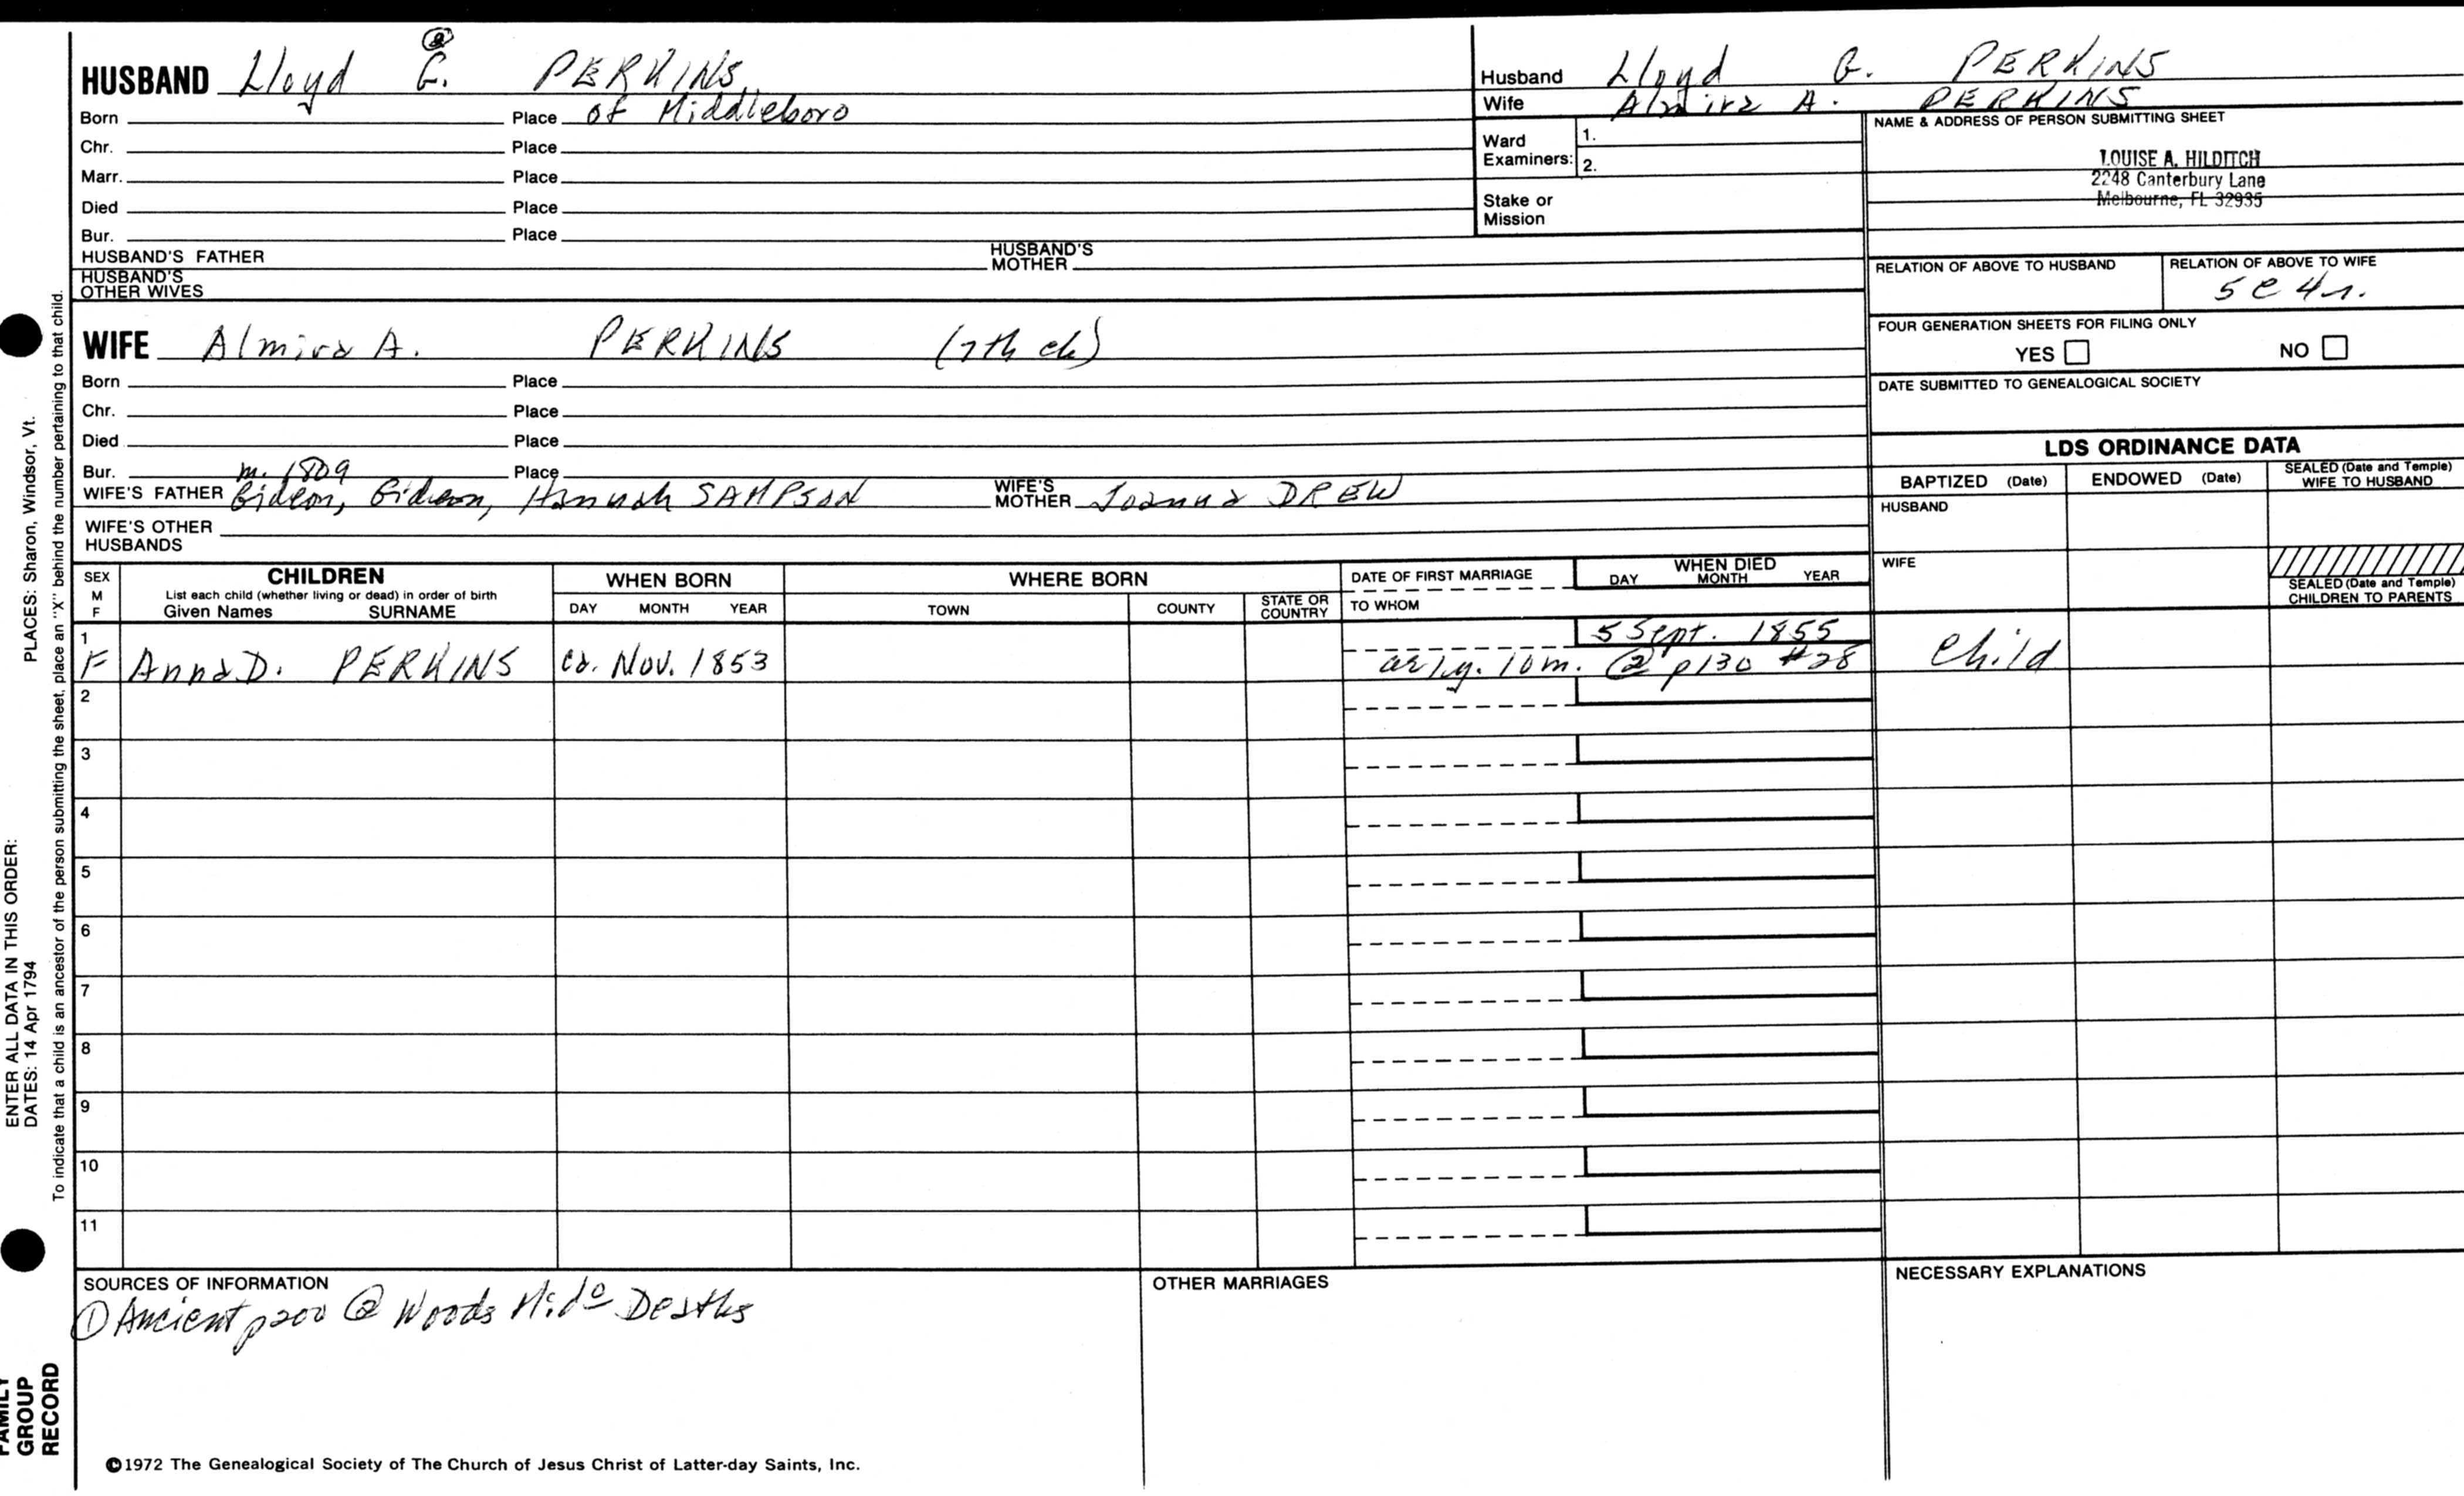 HUSBAND Lloyd G. PERKINS
②
Born Place of Middleboro
Chr. Place
Marr. Place
Died Place
Bur. Place
HUSBAND'S FATHER HUSBAND'S MOTHER
HUSBAND'S OTHER WIVES
Husband Lloyd G. PERKINS
Wife Almira A. PERKINS
Ward Examiners: 1.
2.
Stake or Mission
NAME & ADDRESS OF PERSON SUBMITTING SHEET
LOUISE A. HILDITCH
2248 Canterbury Lane
Melbourne, FL 32935
RELATION OF ABOVE TO HUSBAND RELATION OF ABOVE TO WIFE
5c4r.
FOUR GENERATION SHEETS FOR FILING ONLY
YES NO
DATE SUBMITTED TO GENEALOGICAL SOCIETY
WIFE Almira A. PERKINS (7th ch)
Born Place
Chr. Place
Died Place
Bur. Place
m. 1809
WIFE'S FATHER Gideon, Gideon, Hannah SAMPSON WIFE'S MOTHER Joanna DREW
WIFE'S OTHER HUSBANDS
LDS ORDINANCE DATA
BAPTIZED (Date) ENDOWED (Date) SEALED (Date and Temple) WIFE TO HUSBAND
HUSBAND
WIFE
SEALED (Date and Temple) CHILDREN TO PARENTS
SEX M F CHILDREN WHEN BORN WHERE BORN DATE OF FIRST MARRIAGE WHEN DIED
List each child (whether living or dead) in order of birth
Given Names SURNAME DAY MONTH YEAR TOWN COUNTY STATE OR COUNTRY TO WHOM DAY MONTH YEAR
1 5 Sept. 1855
F Anna D. PERKINS ca. Nov. 1853 ae 1y. 10m. ② p130 #28 Child
2
3
4
5
6
7
8
9
10
11
SOURCES OF INFORMATION
① Ancient p200 ② Woods Mido Deaths
OTHER MARRIAGES
NECESSARY EXPLANATIONS
©1972 The Genealogical Society of The Church of Jesus Christ of Latter-day Saints, Inc.
ENTER ALL DATA IN THIS ORDER:
DATES: 14 Apr 1794 PLACES: Sharon, Windsor, Vt.
To indicate that a child is an ancestor of the person submitting the sheet, place an "X" behind the number pertaining to that child.
FAMILY
GROUP
RECORD